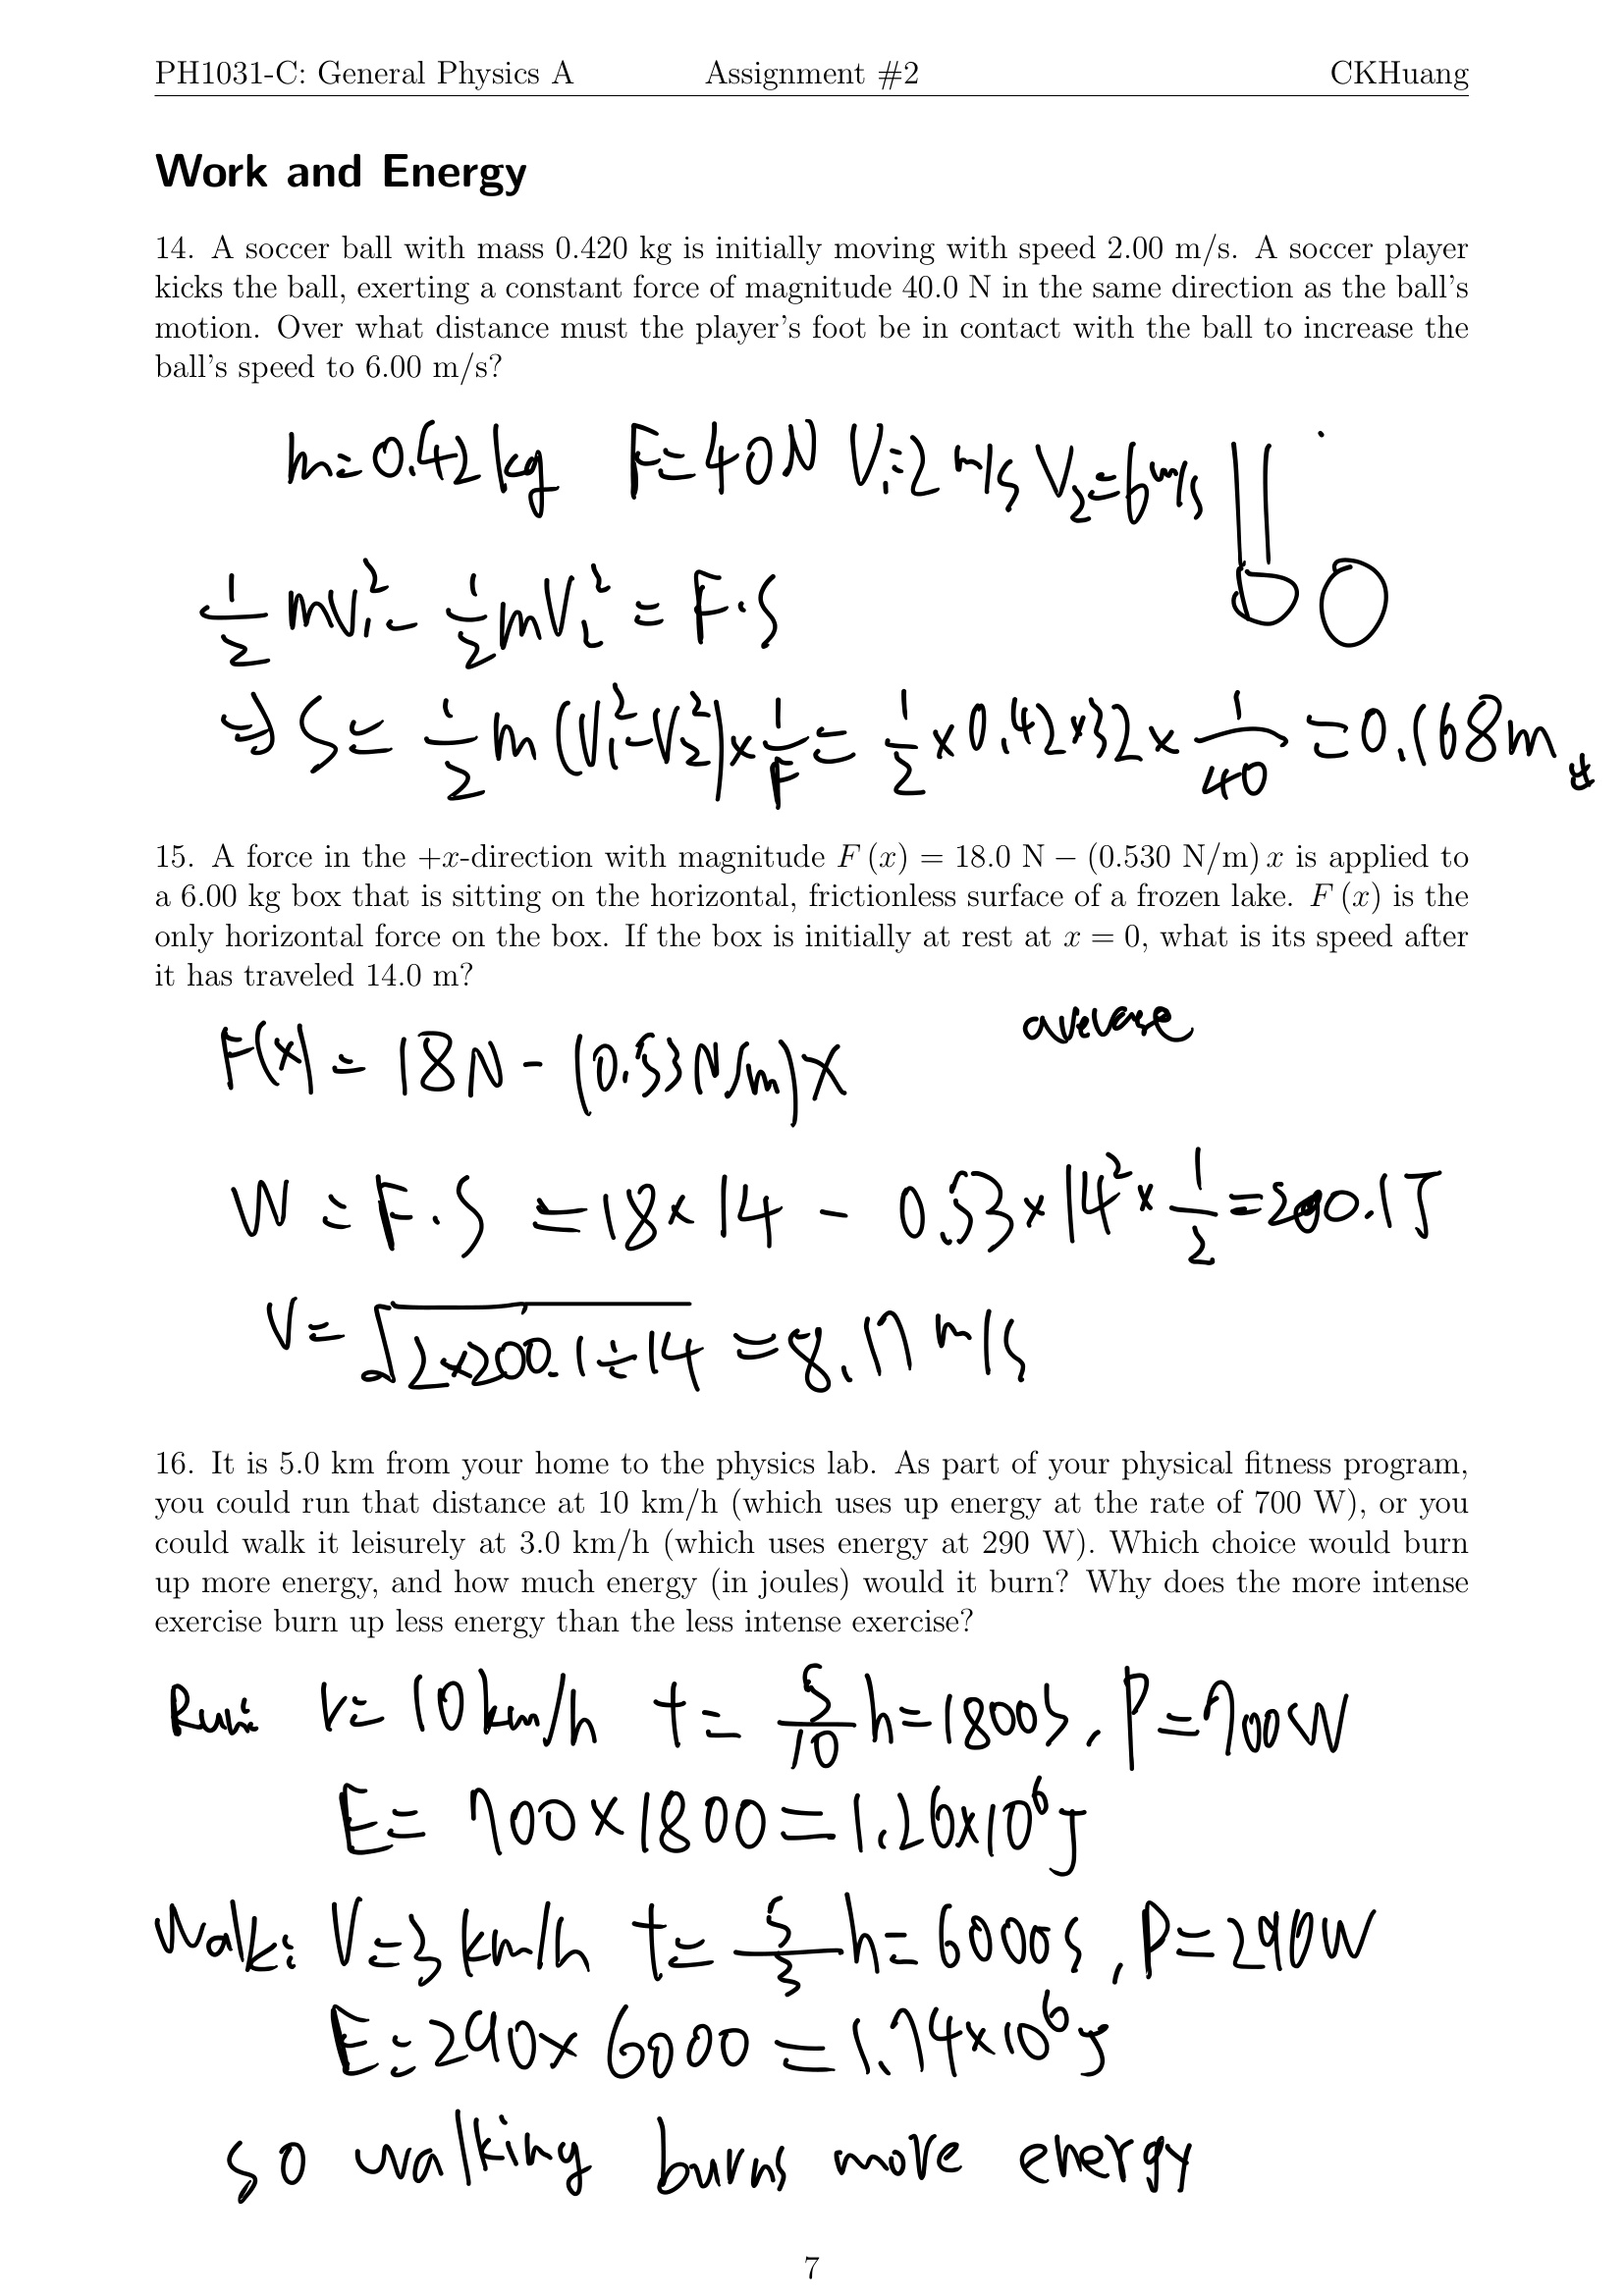 PH1031-C: General Physics A Assignment #2 CKHuang
Work and Energy
14. A soccer ball with mass 0.420 kg is initially moving with speed 2.00 m/s. A soccer player
kicks the ball, exerting a constant force of magnitude 40.0 N in the same direction as the ball's
motion. Over what distance must the player's foot be in contact with the ball to increase the
ball's speed to 6.00 m/s?
m=0.42kg F=40N V₁=2m/s V₂=6m/s
1/2 mV₁² - 1/2 mV₂² = F·S
⇒ S = 1/2 m (V₁²-V₂²) × 1/F = 1/2 × 0.42 × 32 × 1/40 = 0.168m #
15. A force in the +x-direction with magnitude F (x) = 18.0 N − (0.530 N/m) x is applied to
a 6.00 kg box that is sitting on the horizontal, frictionless surface of a frozen lake. F (x) is the
only horizontal force on the box. If the box is initially at rest at x = 0, what is its speed after
it has traveled 14.0 m?
F(x) = 18N - (0.53N/m)x
W = F·S = 18×14 - 0.53×14²×1/2 = 200.1J
V = √(2×200.1÷14) = 8.17 m/s
16. It is 5.0 km from your home to the physics lab. As part of your physical fitness program,
you could run that distance at 10 km/h (which uses up energy at the rate of 700 W), or you
could walk it leisurely at 3.0 km/h (which uses energy at 290 W). Which choice would burn
up more energy, and how much energy (in joules) would it burn? Why does the more intense
exercise burn up less energy than the less intense exercise?
Run: V=10km/h t=5/10 h=1800s, P=700W
E= 700×1800=1.26×10⁶J
Walk: V=3km/h t=5/3 h=6000s, P=290W
E=290×6000=1.74×10⁶J
so walking burns more energy
7